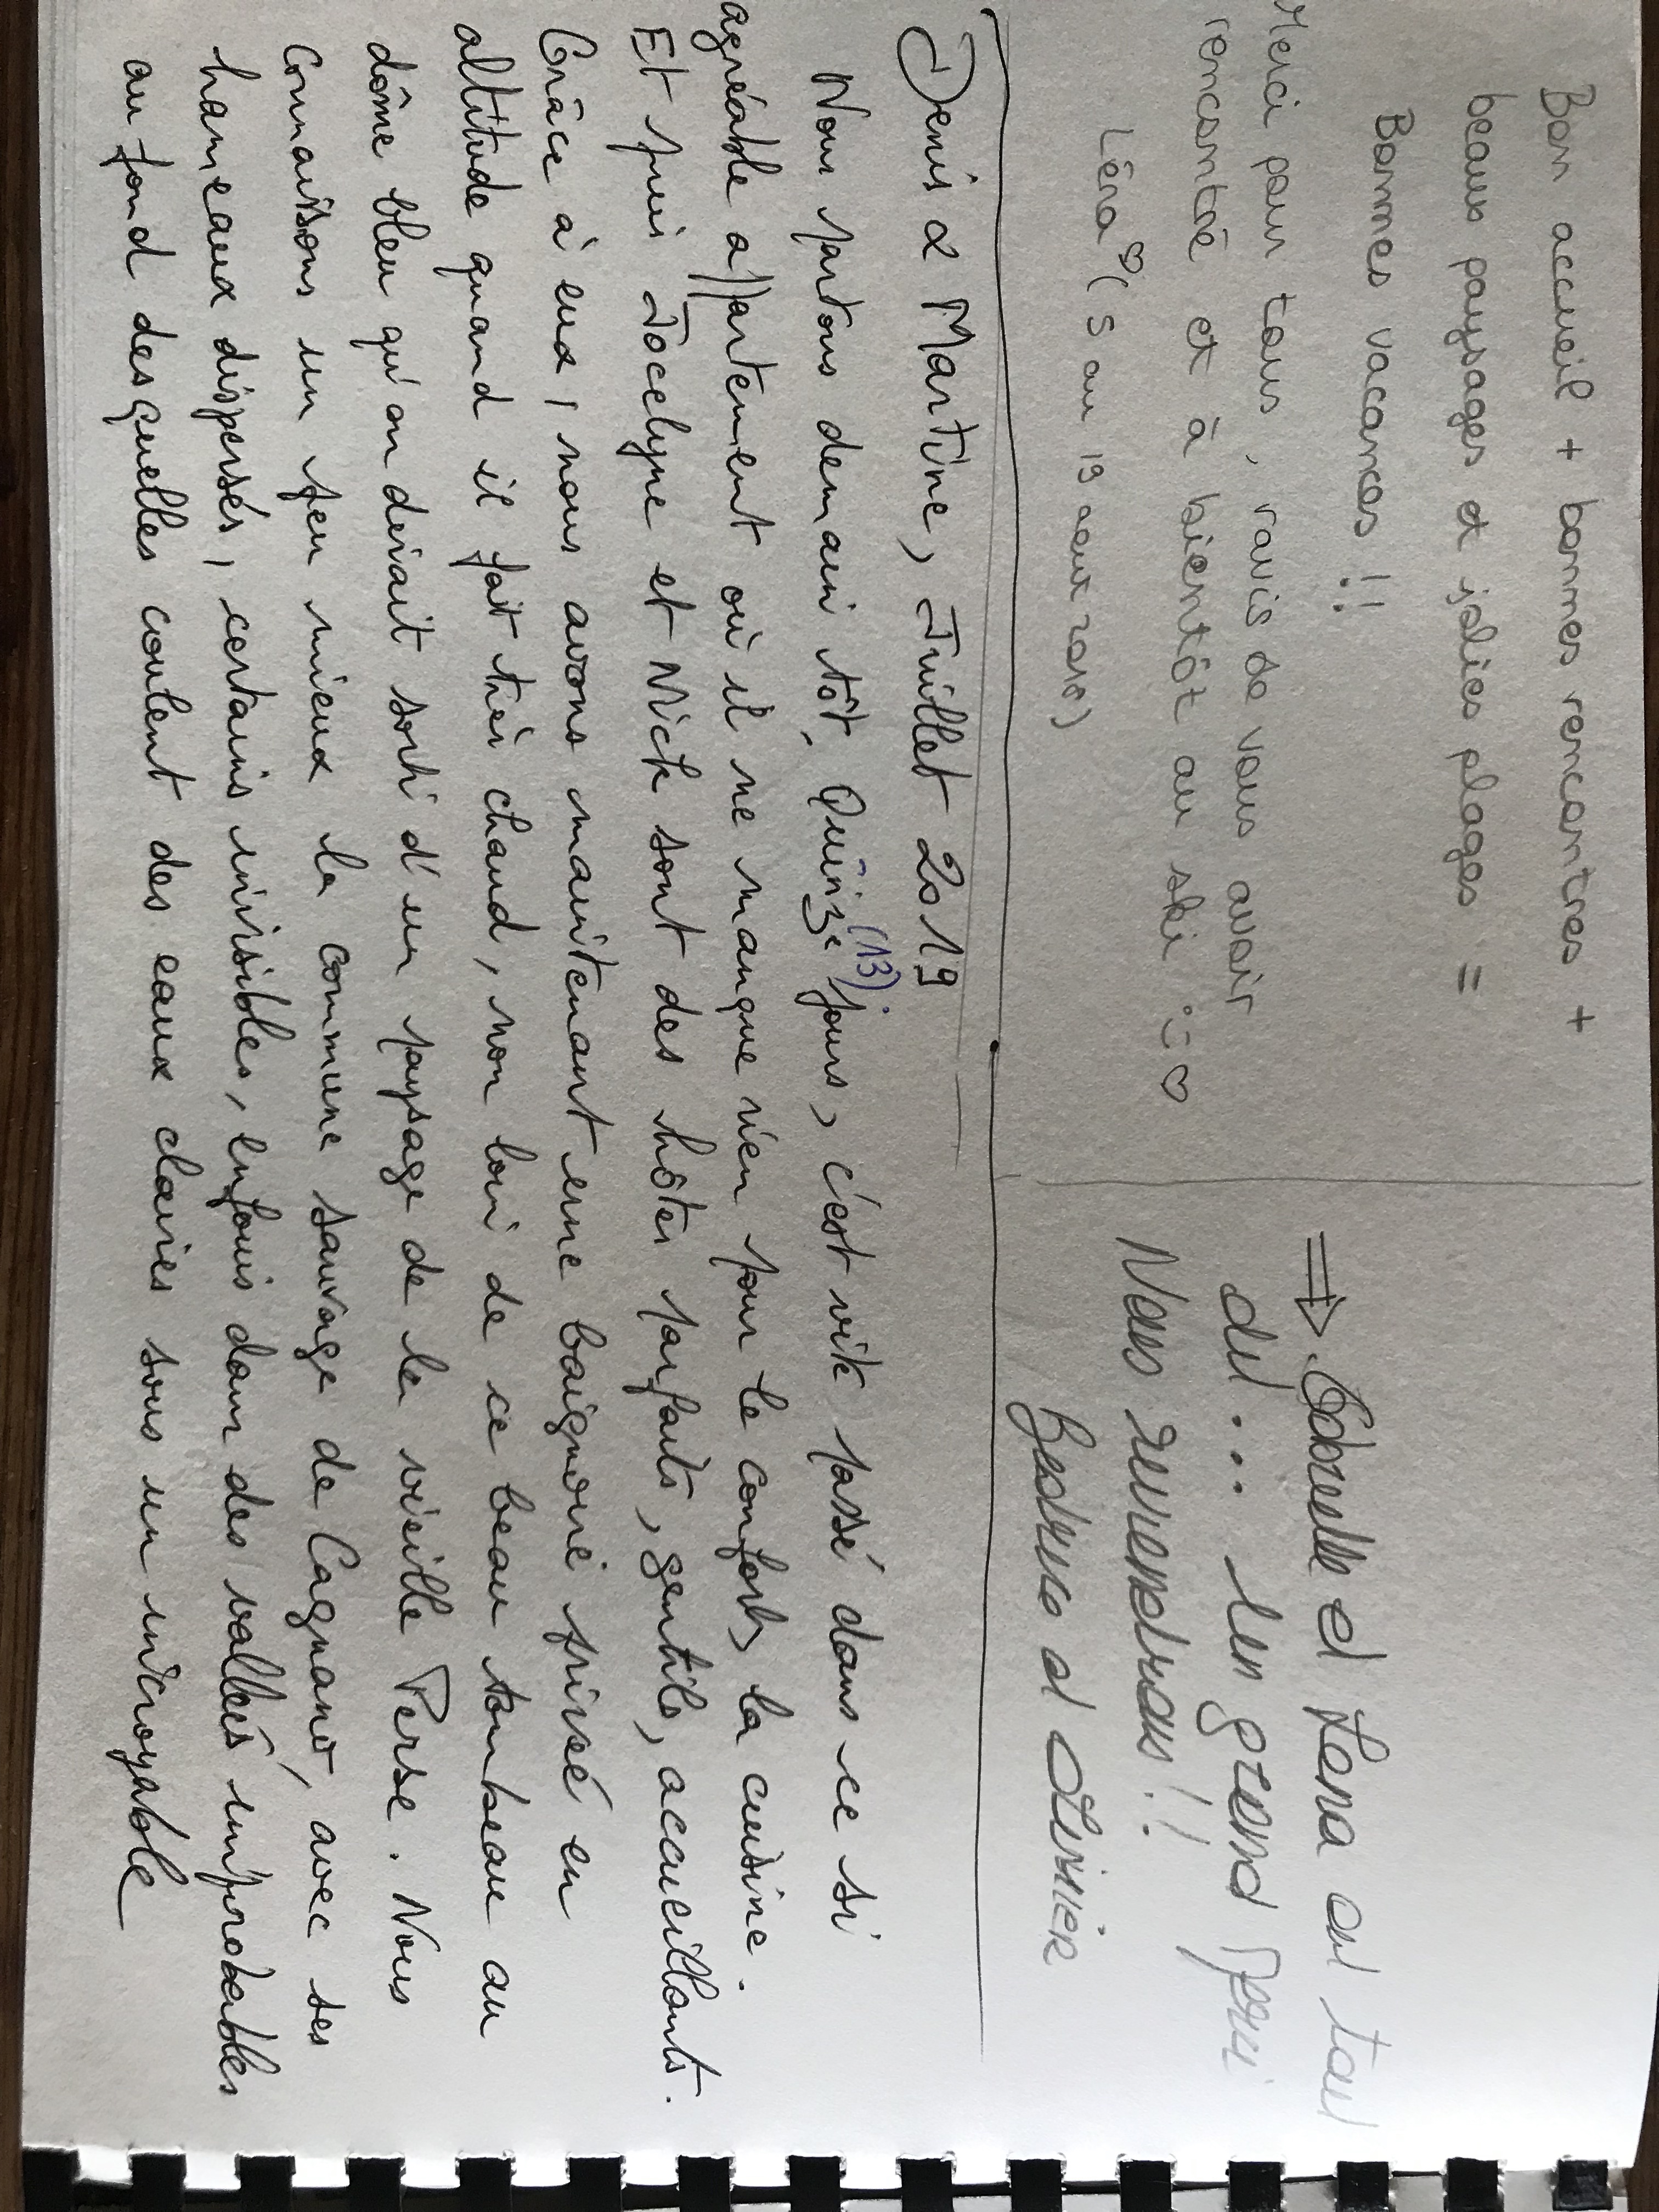 Bon accueil + bonnes rencontres +
beaux paysages et jolies plages =
Bonnes vacances !!
Merci pour tous, ravis de vous avoir
rencontré et à bientôt au ski :) ♡
Léna ♡ (5 au 19 aout 2018)
⇒ Gabrielle et Lena ont tout
dit... Un grand Merci
Nous reviendrons !!
Beatrice et Olivier
Denis & Martine, Juillet 2019
Nous partons demain tôt. Quinze (13) jours, c'est vite passé dans ce si
agréable appartement où il ne manque rien pour le confort, la cuisine.
Et puis Jocelyne et Nick sont des hôtes parfaits, gentils, accueillants.
Grâce à eux, nous avons maintenant une baignoire privée en
altitude quand il fait très chaud, non loin de ce beau tombeau au
dôme bleu qu'on dirait sorti d'un paysage de la vieille Perse. Nous
connaissons un peu mieux la commune sauvage de Cagnano, avec ses
hameaux dispersés, certains invisibles, enfouis dans des vallées improbables
au fond desquelles coulent des eaux claires sous un incroyable